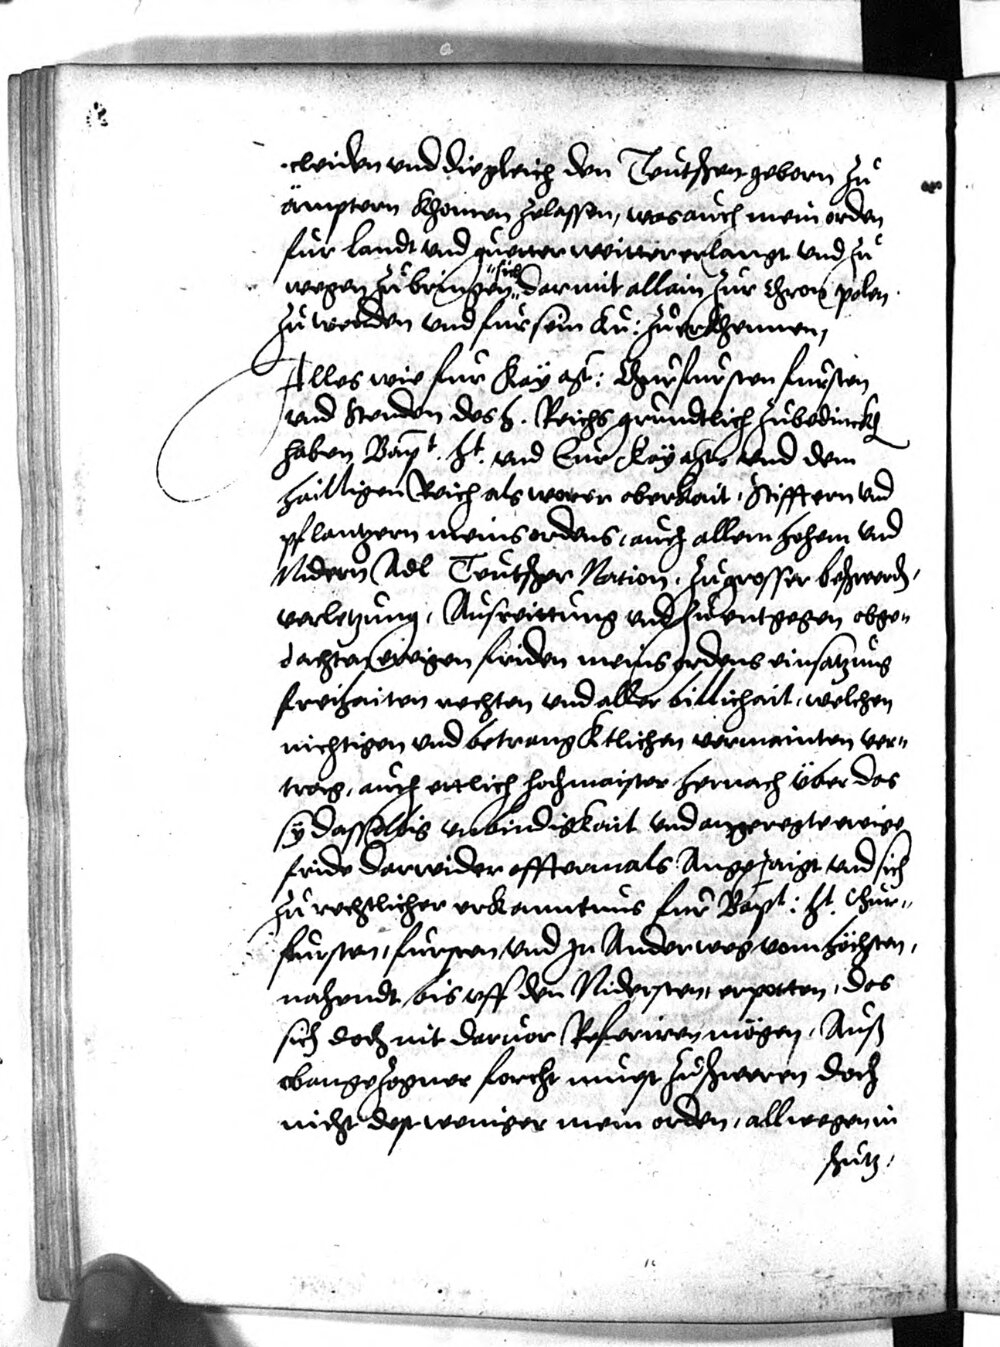 cleiden und die gleich den Teutschen gebern zu
ämptern khomen zelassen, was auch mein orden
fur landt und gueter weitter erlangt und zu
wegen zubringen sich darmit allain zur Chron polen
zu wenden und fur sein Ku: zu erkhennen,
Alles wie fur Kay Mt: Churfursten fursten
und Stenden des h. Reichs gruntlich zubedincken
haben Bapt. ht. und Eur Kay Mt. und dem
hailligen Reich als waren oberkait, Stifftern und
pflantzern meins ordens, auch allem hohem und
Nidern Adl Teutscher Nation, zu grosser beschwerd,
verletzung, Ausreittung und zu entgegen obge-
dachten ewigen friden meins ordens einsatzung
freihaiten rechten und aller billichait, welchen
nichtigen und betrangktlichen vermainten ver-
trag, auch ettlich hochmaister hernach über das
sy dasselbig unbindigkait und angeregte ewige
fride darwider offtermals Angezaigt und sich
zu rechtlicher erkanntnus fur Bapt: ht. Chur-
fursten, fursten und in Ander weg vom höchsten,
nahendt bis uff den Nidersten, erpotten, das
sich doch nit daruor Referiren mögen, Auß
obangezogner forcht muest zuschweren doch
nicht dest weniger mein orden, allwegen in
schutz,